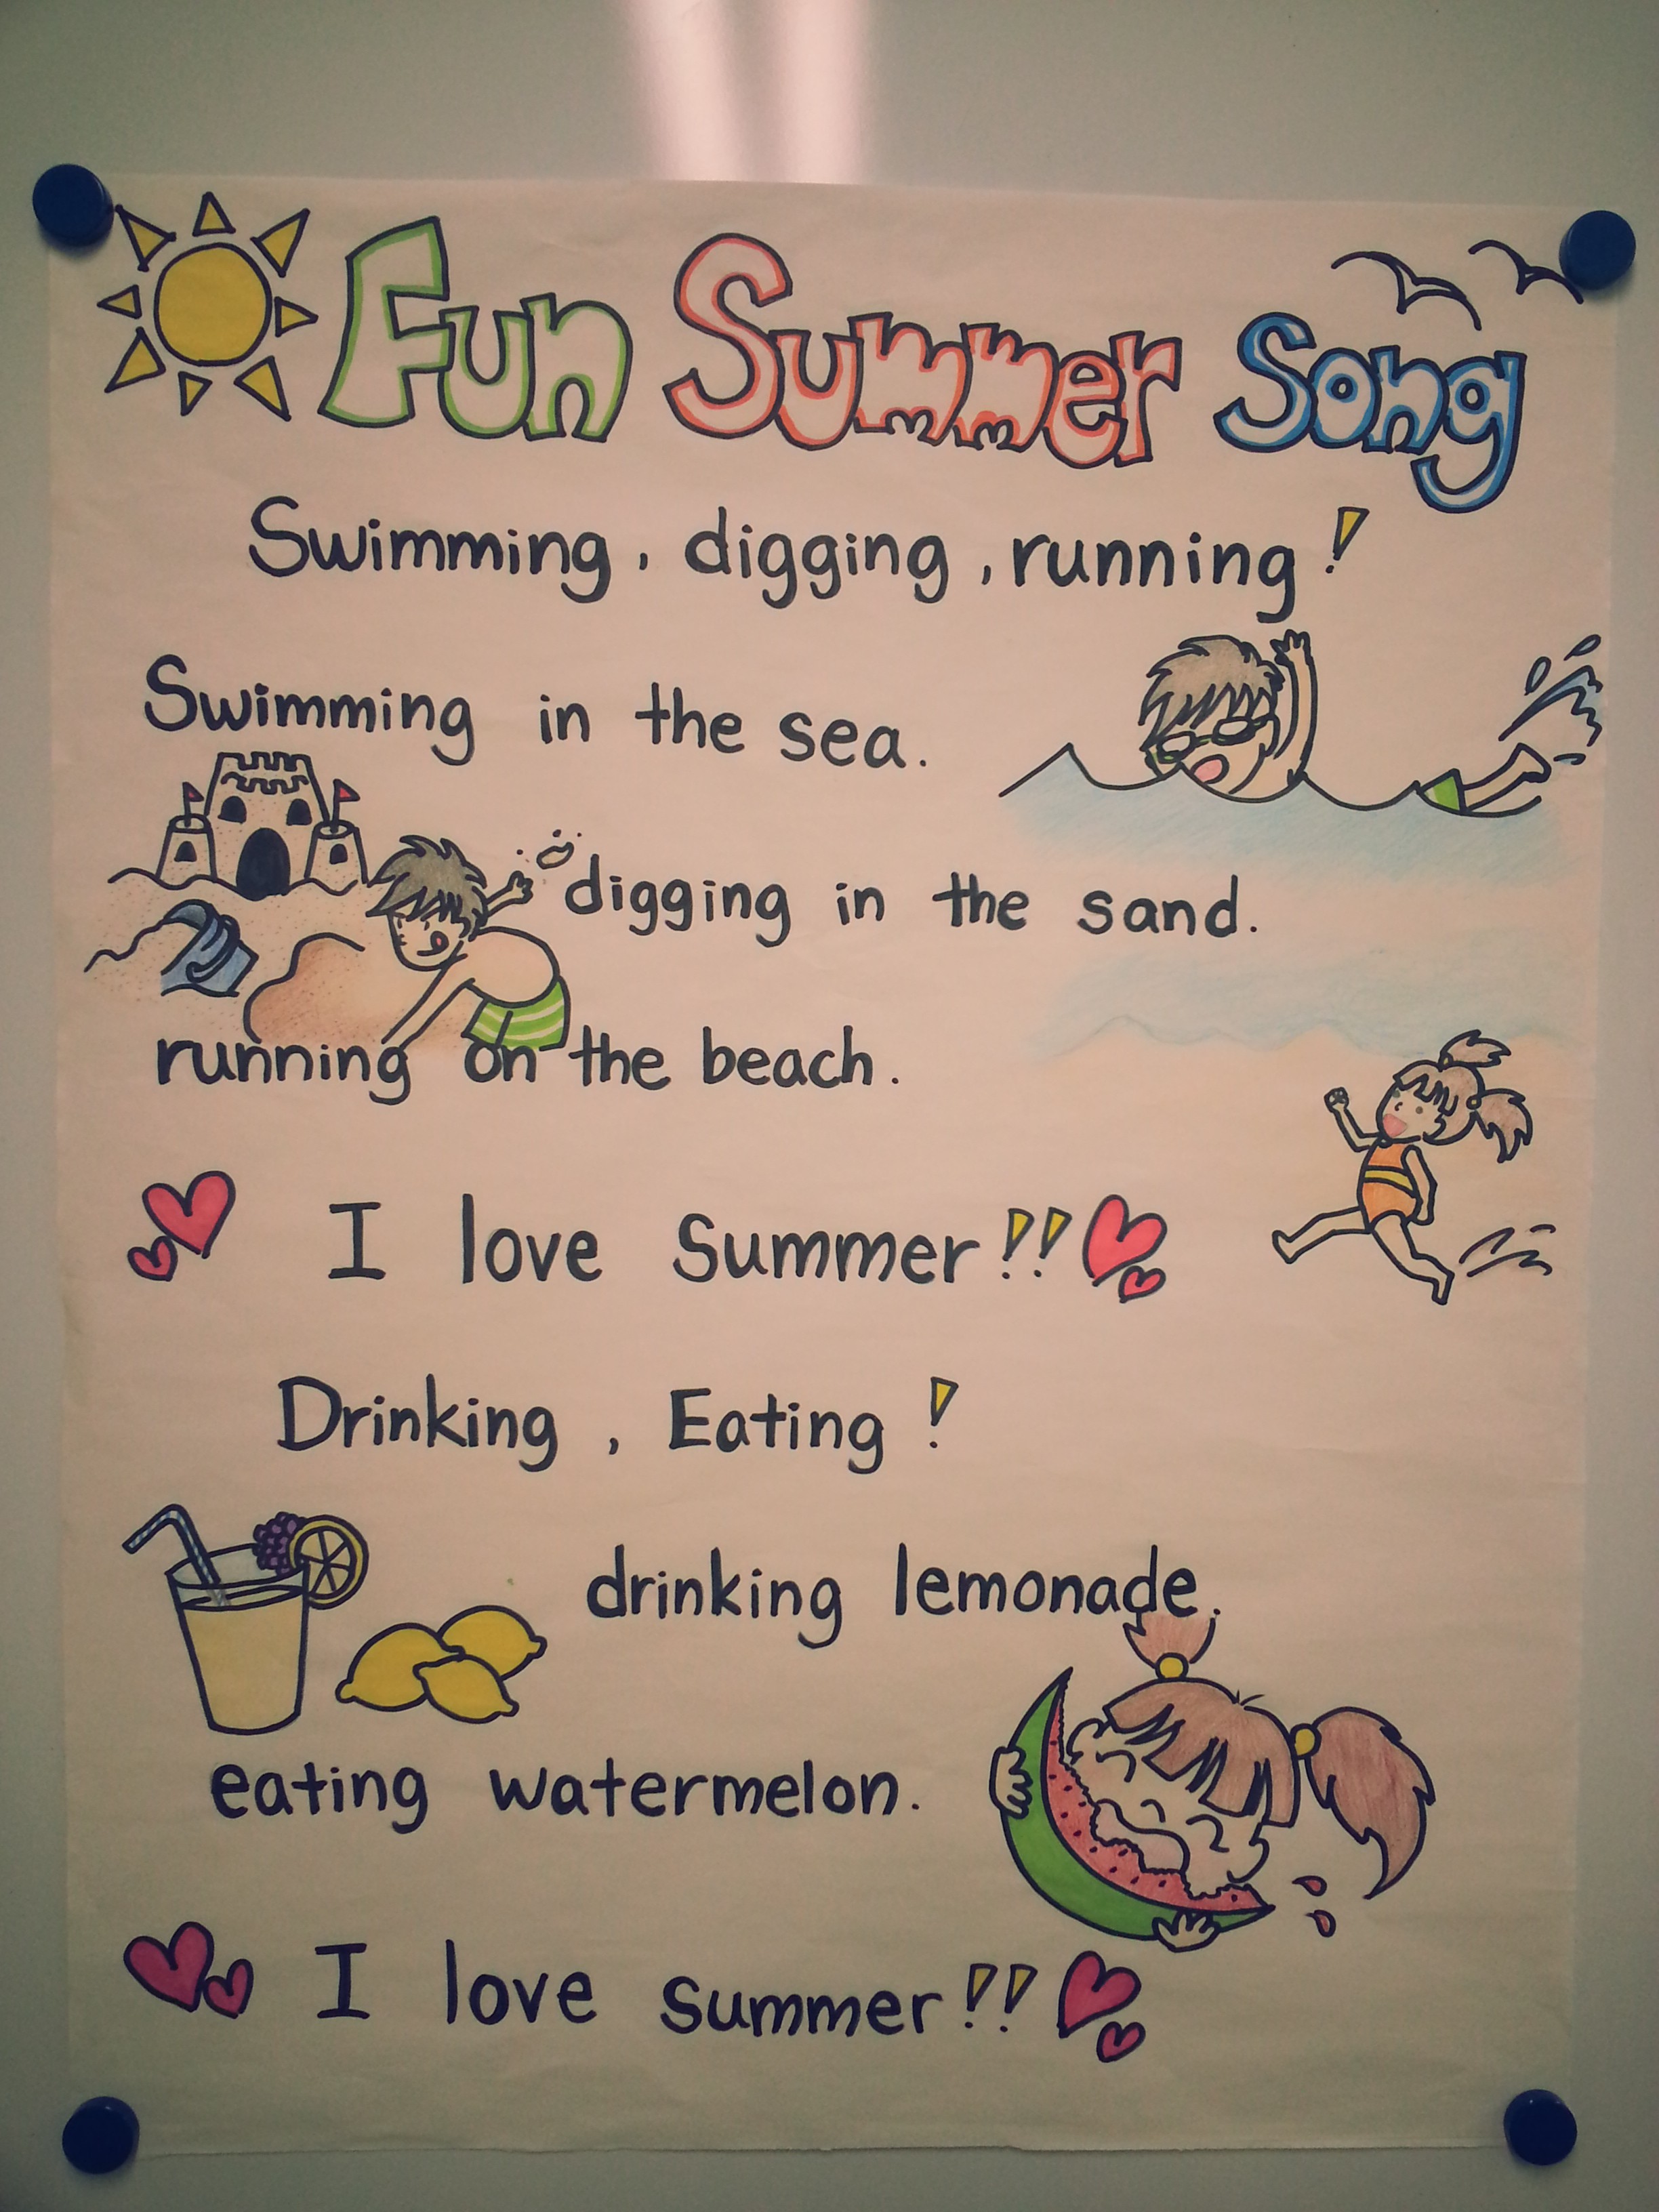 Fun Summer Song
Swimming, digging, running!
Swimming in the sea.
digging in the sand.
running on the beach.
I love Summer!!
Drinking, Eating!
drinking lemonade.
eating watermelon.
I love summer!!